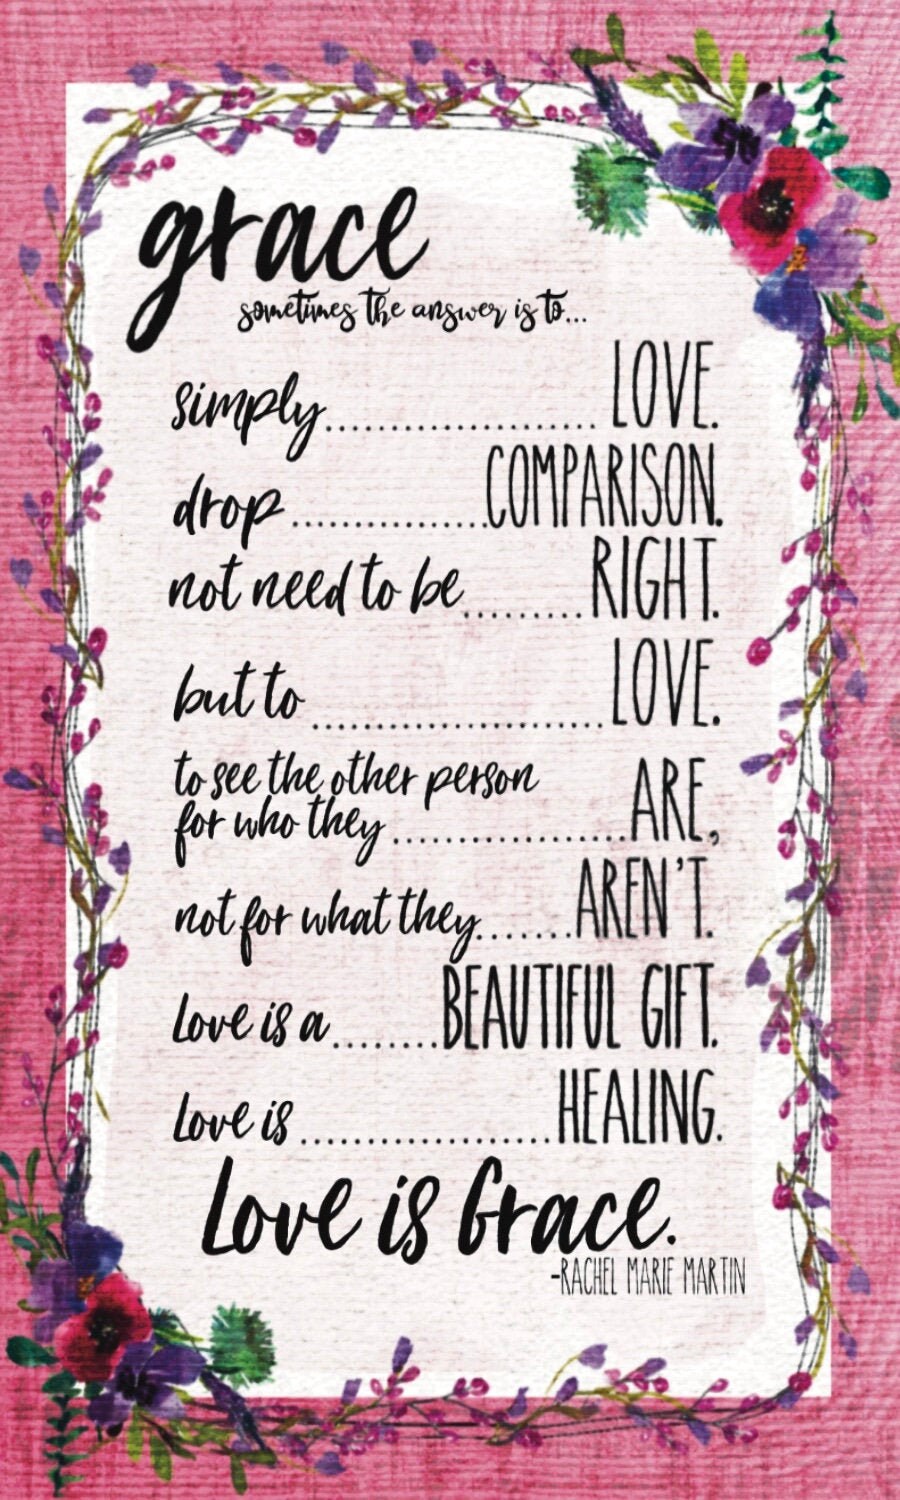 grace
sometimes the answer is to...
simply...................... LOVE.
drop ................COMPARISON.
not need to be..........RIGHT.
but to ........................LOVE.
to see the other person
for who they ...................ARE,
not for what they........AREN'T.
Love is a.........BEAUTIFUL GIFT.
Love is .....................HEALING.
Love is Grace.
-RACHEL MARIE MARTIN